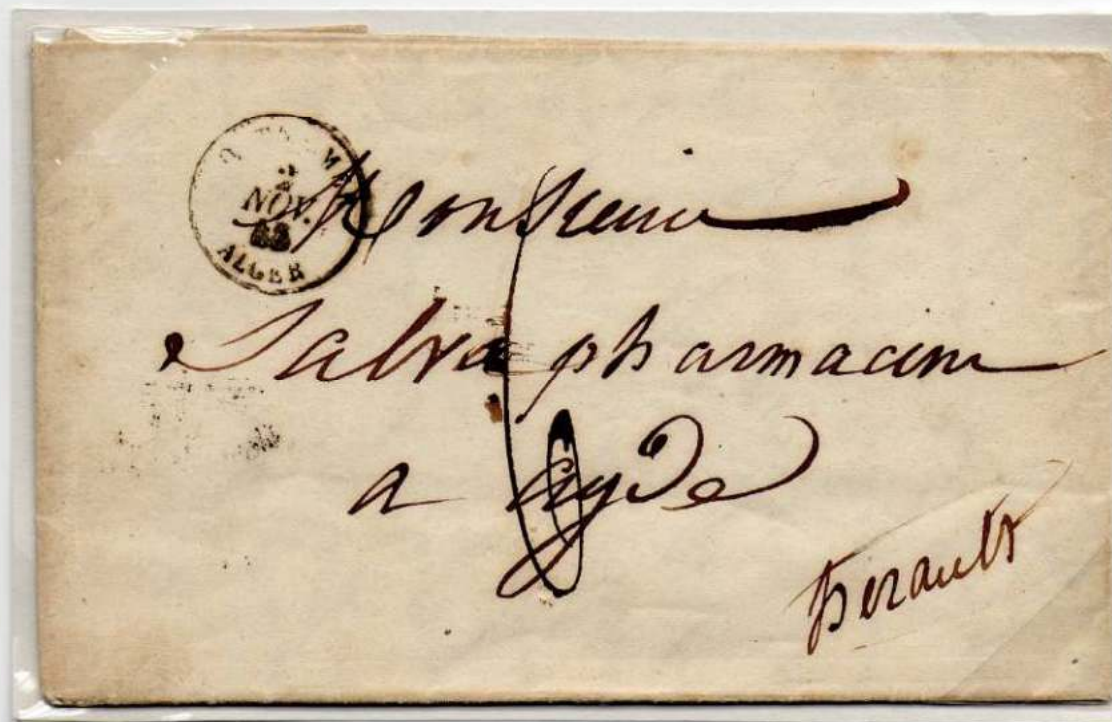 2
NOV.
ALGER
Monsieur
Salva pharmacien
a agde
herault
6